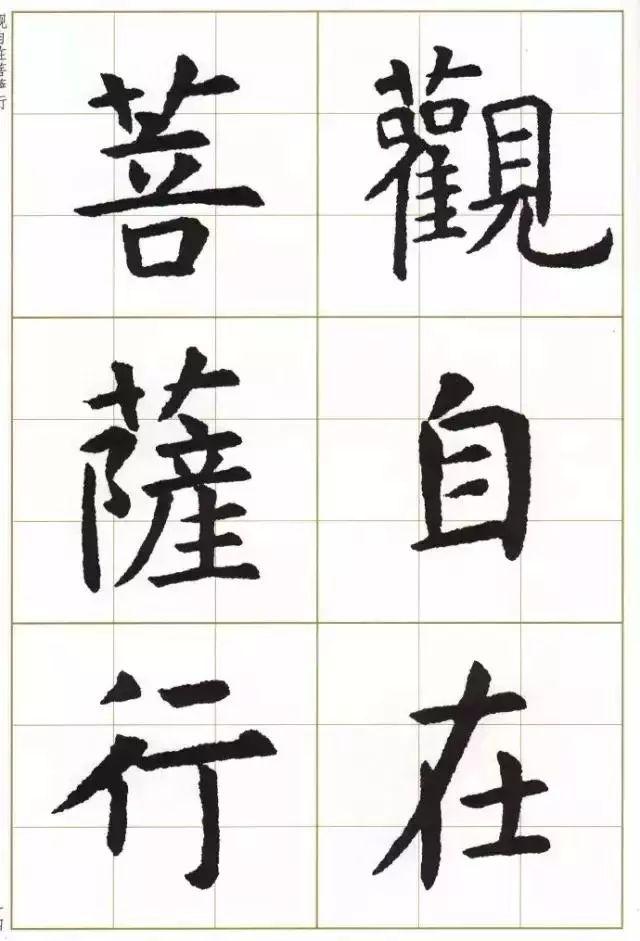 觀自在
菩薩行
观自在菩萨行